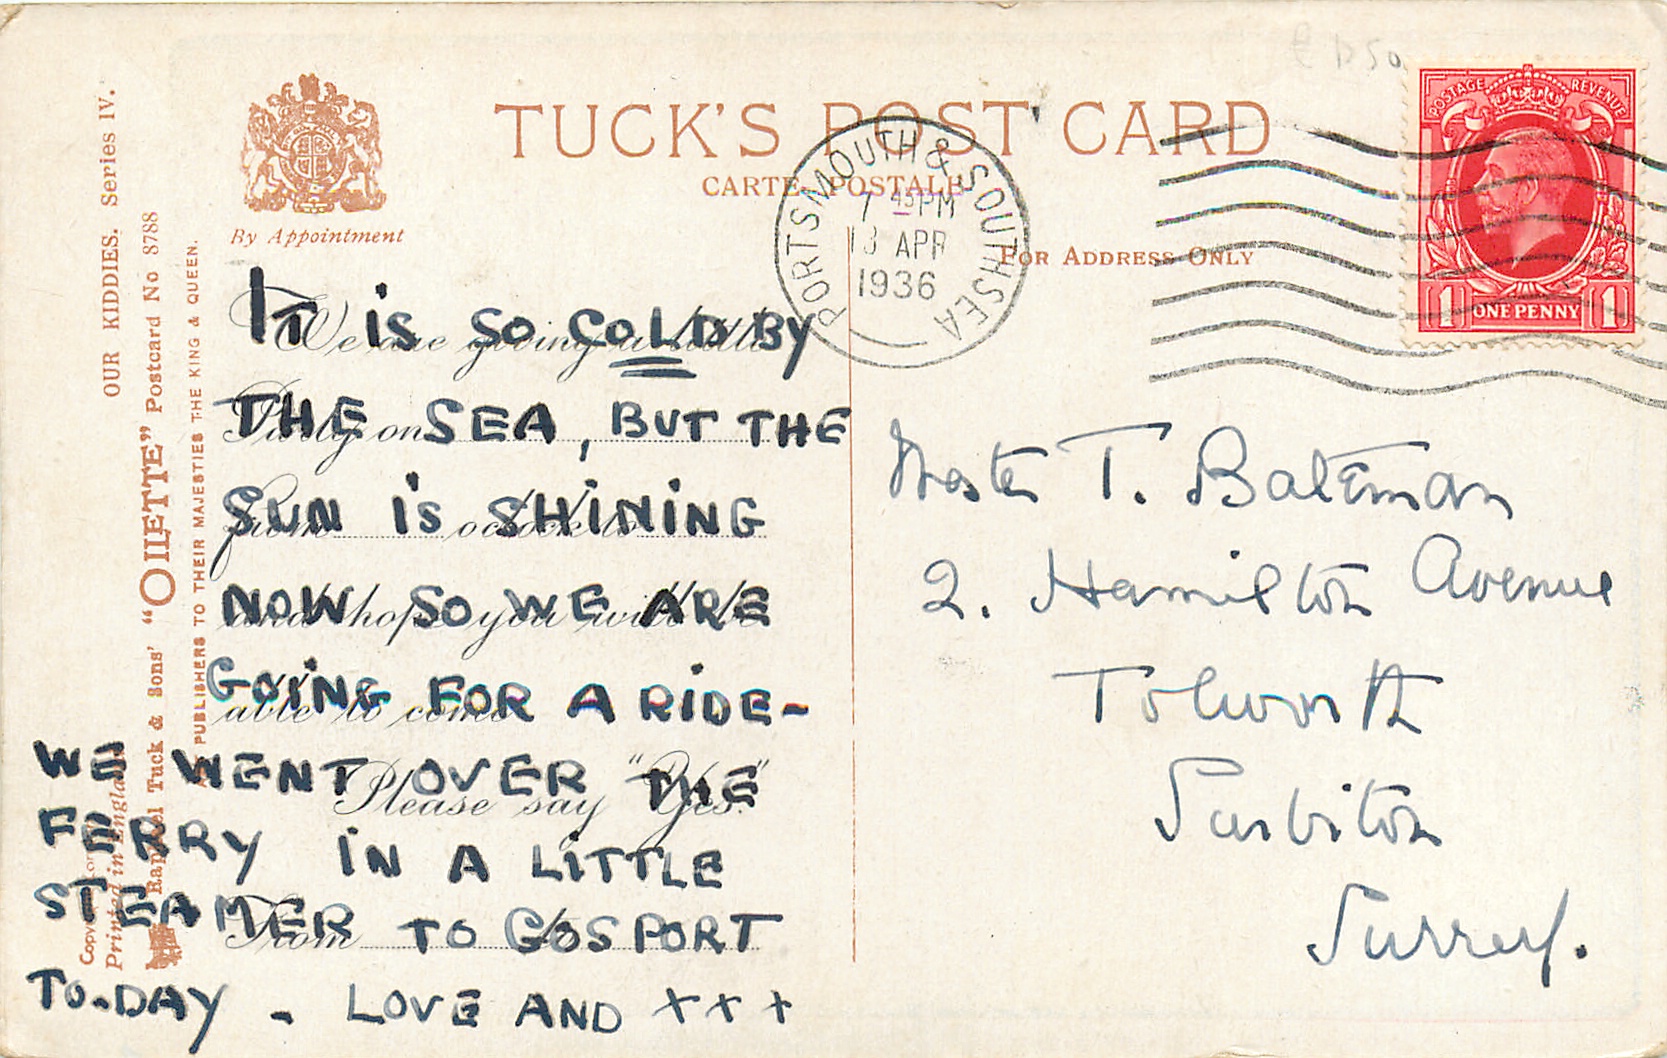 TUCK'S POST CARD
CARTE POSTALE
By Appointment
FOR ADDRESS ONLY
PORTSMOUTH & SOUTHSEA
7 45 PM
13 APR
1936
POSTAGE REVENUE
1 ONE PENNY 1
OUR KIDDIES. Series IV.
"OILETTE" Postcard No 8788
Raphael Tuck & Sons'
PUBLISHERS TO THEIR MAJESTIES THE KING & QUEEN.
Printed in England
We are giving a little
Party on
from o'clock to
and hope you will be
able to come
Please say "Yes."
From
IT IS SO COLD BY
THE SEA, BUT THE
SUN IS SHINING
NOW SO WE ARE
GOING FOR A RIDE-
WE WENT OVER THE
FERRY IN A LITTLE
STEAMER TO GOSPORT
TO-DAY - LOVE AND + + +
Master T. Bateman
2. Hamilton Avenue
Tolworth
Surbiton
Surrey.